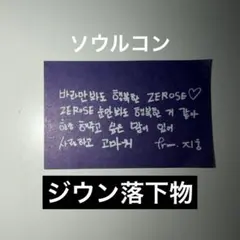 ソウルコン
바라만봐도 행복한 ZEROSE♡
ZEROSE 눈만봐도 행복한 거 같아
하고 싶은 말이 있어
사랑하고 고마워 from. 지웅
ジウン落下物